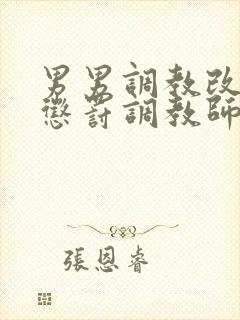 男男調教改
懲罰調教師
張恩睿